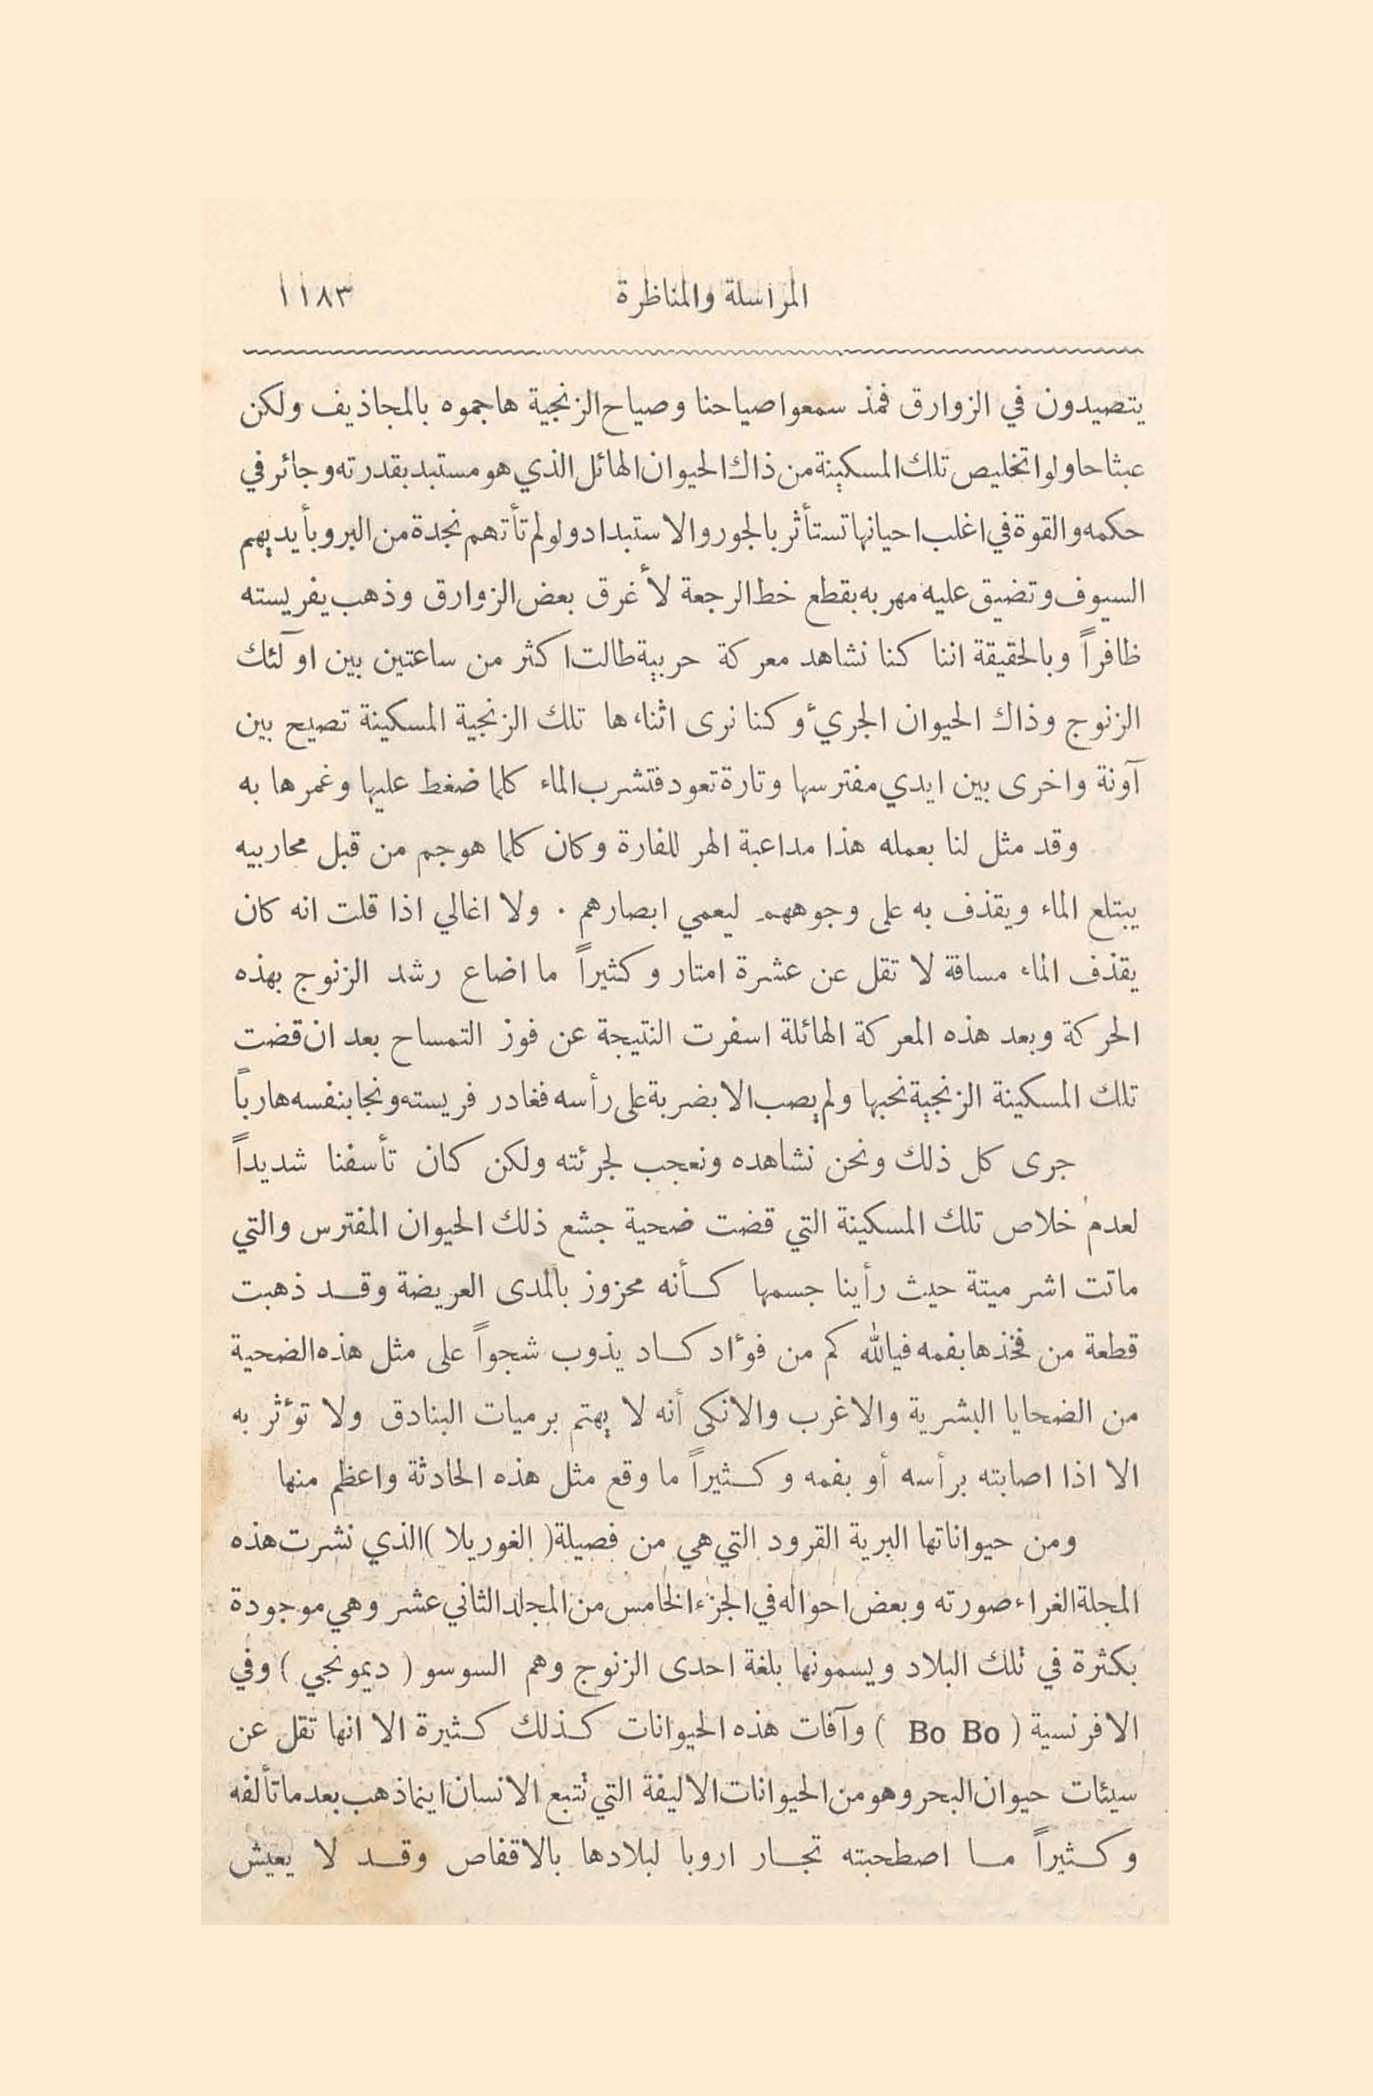 المراسلة والمناظرة ١١٨٣
يتصيدون في الزوارق فمذ سمعوا صياحنا وصياح الزنجية هاجموه بالمجاذيف ولكن
عبثا حاولوا تخليص تلك المسكينة من ذاك الحيوان الهائل الذي هو مستبد بقدرته وجائر في
حكمه والقوة في اغلب احيانها تستأثر بالجور والاستبداد ولو لم تأتهم نجدة من البر وبأيديهم
السيوف وتضيق عليه مهربه بقطع خط الرجعة لأغرق بعض الزوارق وذهب بفريسته
ظافراً وبالحقيقة اننا كنا نشاهد معركة حربية طالت اكثر من ساعتين بين اولٓئك
الزنوج وذاك الحيوان الجرئ وكنا نرى اثناءها تلك الزنجية المسكينة تصيح بين
آونة واخرى بين ايدي مفترسها وتارة تعود فتشرب الماء كلما ضغط عليها وغمرها به
وقد مثل لنا بعمله هذا مداعبة الهر للفارة وكان كلما هوجم من قبل محاربيه
يبتلع الماء ويقذف به على وجوههم ليعمي ابصارهم . ولا اغالي اذا قلت انه كان
يقذف الماء مسافة لا تقل عن عشرة امتار وكثيراً ما اضاع رشد الزنوج بهذه
الحركة وبعد هذه المعركة الهائلة اسفرت النتيجة عن فوز التمساح بعد ان قضت
تلك المسكينة الزنجية نحبها ولم يصب الا بضربة على رأسه فغادر فريسته ونجا بنفسه هارباً
جرى كل ذلك ونحن نشاهده ونعجب لجرئته ولكن كان تأسفنا شديداً
لعدم خلاص تلك المسكينة التي قضت ضحية جشع ذلك الحيوان المفترس والتي
ماتت اشر ميتة حيث رأينا جسمها كأنه محزوز بالمدى العريضة وقد ذهبت
قطعة من فخذها بفمه فيالله كم من فوٴاد كاد يذوب شجواً على مثل هذه الضحية
من الضحايا البشرية والاغرب والانكى أنه لا يهتم برميات البنادق ولا توٴثر به
الا اذا اصابته برأسه أو بفمه وكثيراً ما وقع مثل هذه الحادثة واعظم منها
ومن حيواناتها البرية القرود التي هي من فصيلة ( الغوريلا ) الذي نشرت هذه
المجلة الغراء صورته وبعض احواله في الجزء الخامس من المجلد الثاني عشر وهي موجودة
بكثرة في تلك البلاد ويسمونها بلغة احدى الزنوج وهم السوسو ( ديمونجي ) وفي
الافرنسية ( Bo Bo ) وآفات هذه الحيوانات كذلك كثيرة الا انها تقل عن
سيئات حيوان البحر وهو من الحيوانات الاليفة التي تتبع الانسان اينما ذهب بعد ما تألفه
وكثيراً ما اصطحبته تجار اروبا لبلادها بالاقفاص وقد لا يعيش